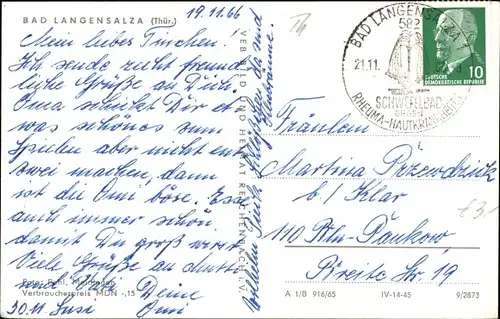 BAD LANGENSALZA (Thür.)
19.11.66
Mein liebes Tinchen!
Ich sende recht freund-
liche Grüße an Dich.
Oma schickt Dir et
was schönes zum
Spielen aber nicht ent
zwei machen, dann
ist die Omi böse. Esse
auch immer schön
damit Du groß wirst.
Viele Grüße an Mutti
und Vati Deine
30.11. Omi
Verbraucherpreis MDN -,15
VEB BILD UND HEIMAT REICHENBACH i. V.
BAD LANGENSALZA
582
21.11.
SCHWEFELBAD
RHEUMA-HAUTKRANKHEITEN
10
DEUTSCHE
DEMOKRATISCHE REPUBLIK
Fräulein
Martina Przewdzink
b/ Klar
110 Bln-Pankow
Breite Str. 19
A 1/B 916/65 IV-14-45 9/2873